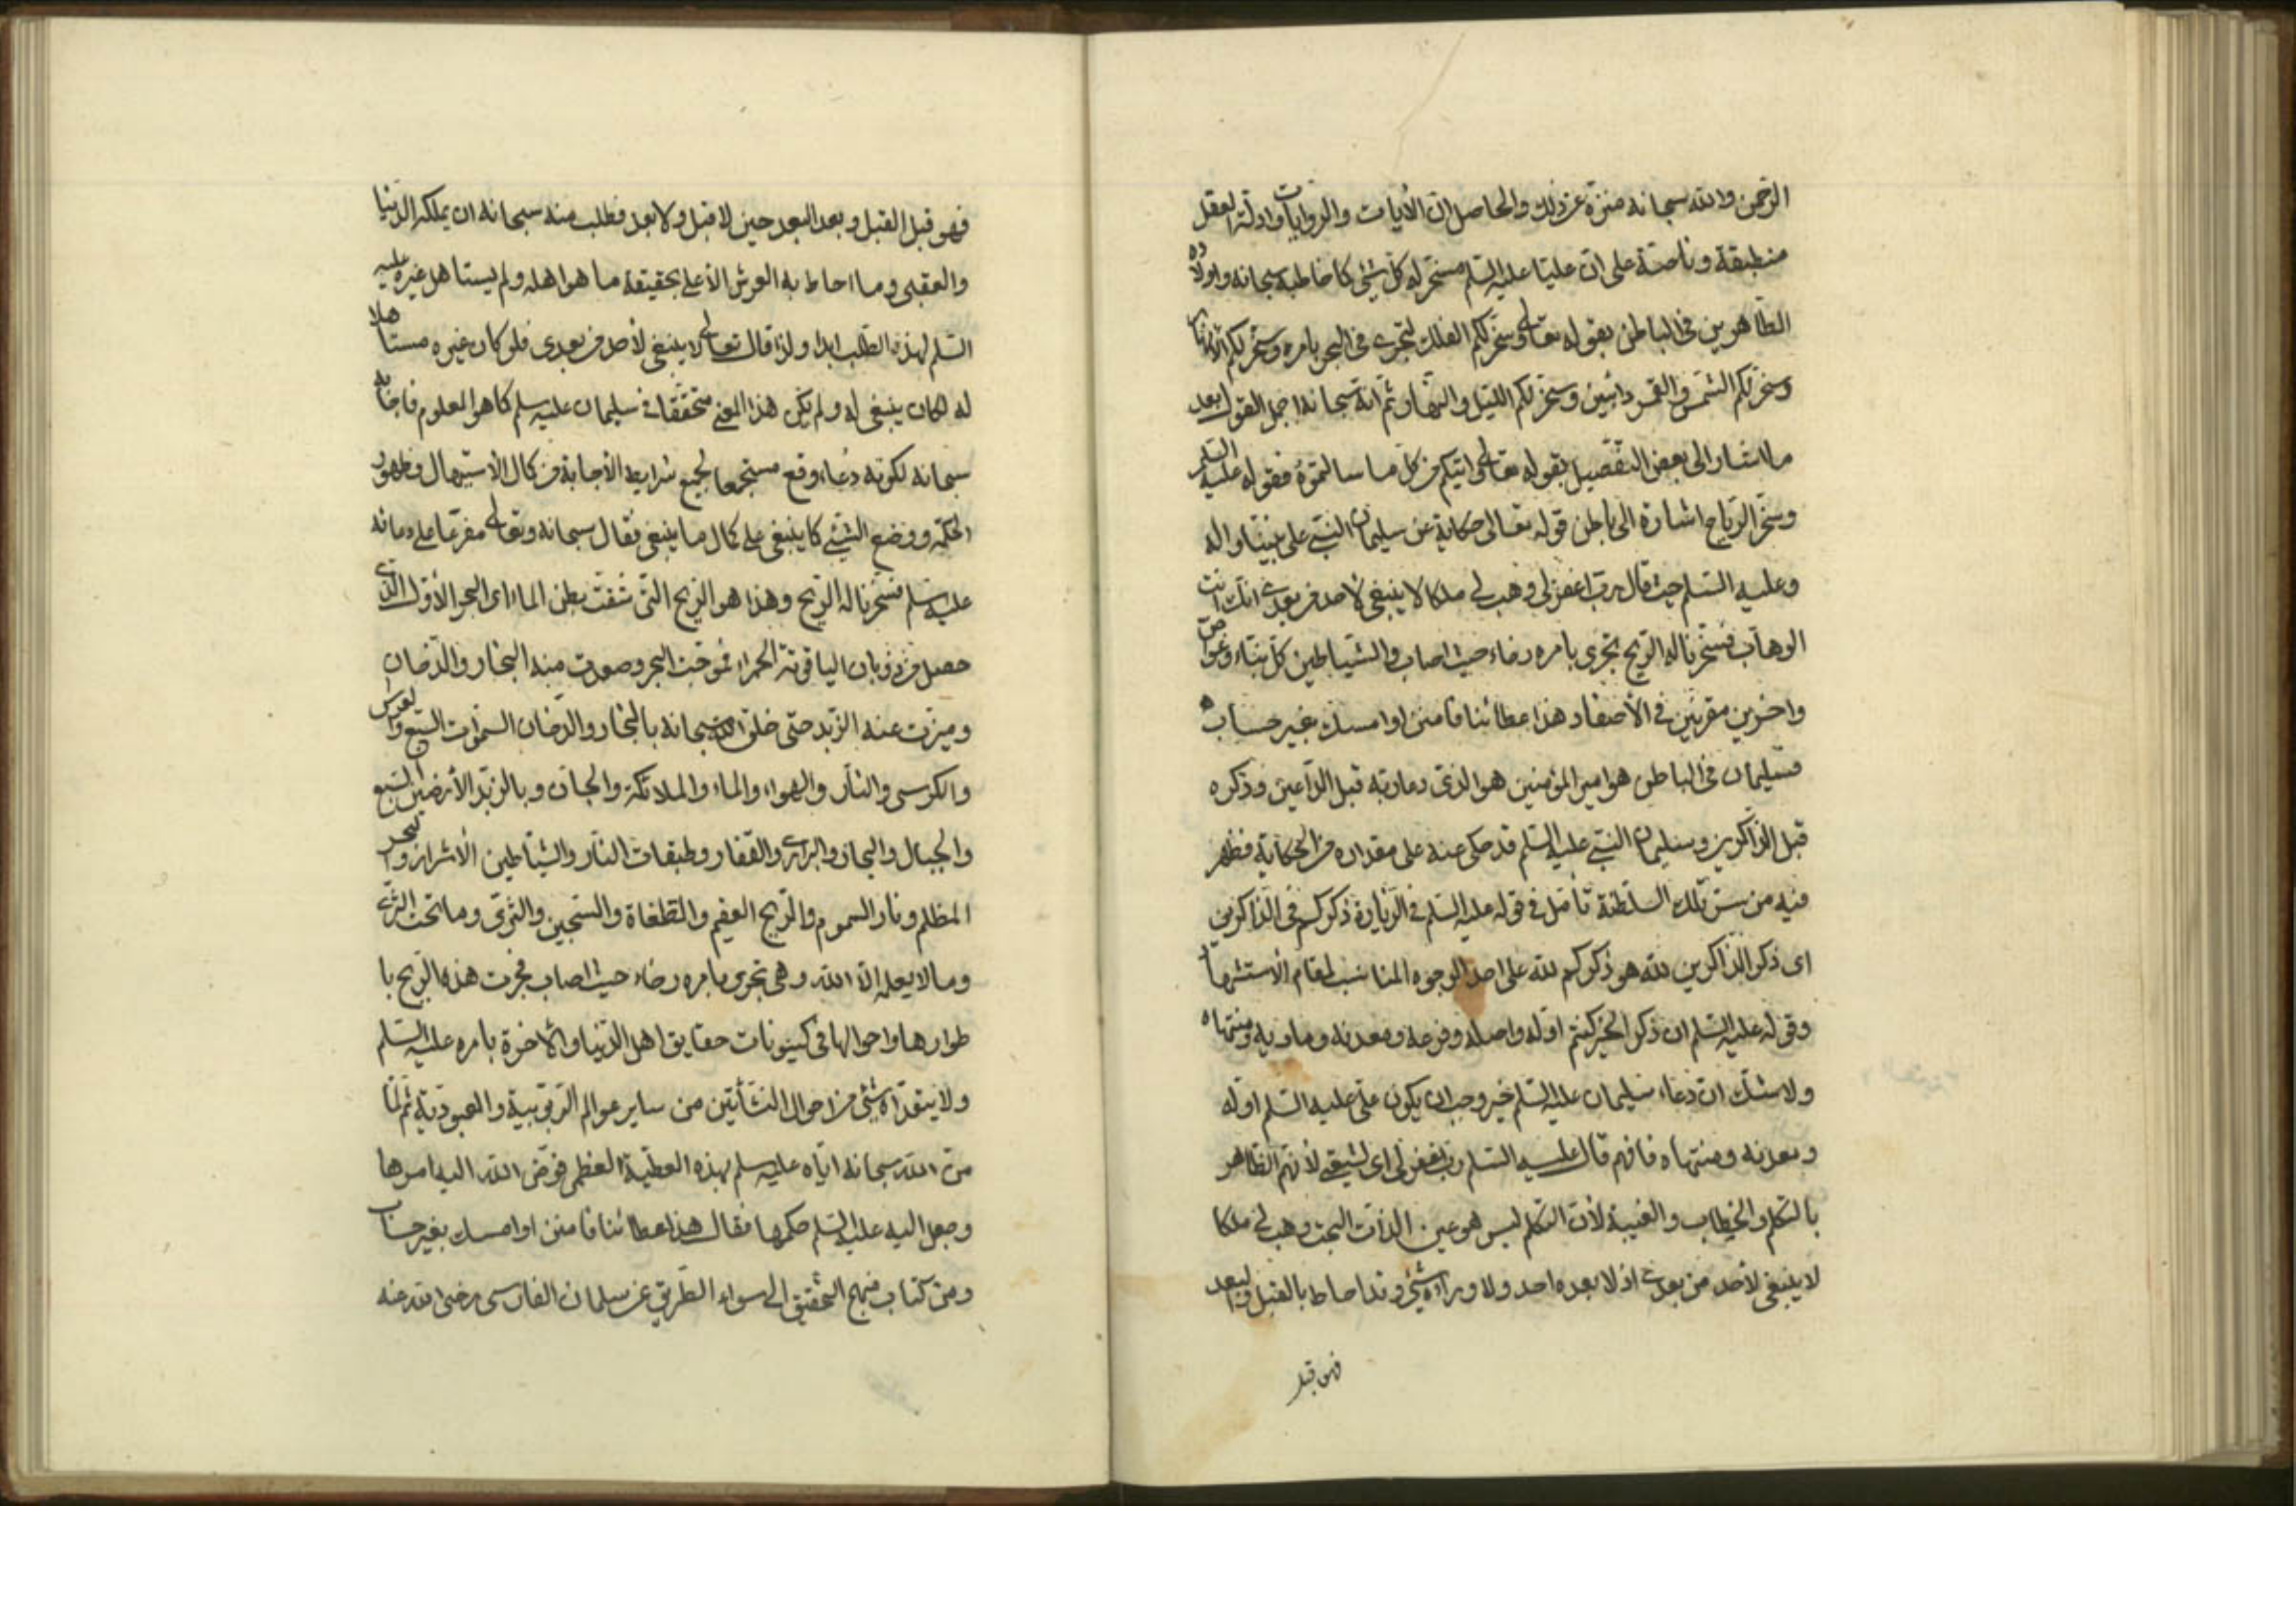 الرحمن والله سبحانه منزه عن ذلك والحاصل ان الأيات والروايات وادلة العقل
منطبقة وناصة على ان عليا عليه السلم مسخر له كل شيئ كما خاطبه سبحانه واولاده
الطاهرين في الباطن بقوله تعالى وسخر لكم الفلك لتجري في البحر بامره وسخر لكم الأنهار
وسخر لكم الشمس والقمر دائبين وسخر لكم الليل والنهار ثم انه سبحانه اجمل القول بعد
ما اشار الى بعض التفصيل بقوله تعالى واتيكم من كل ما سالتموه فقوله عليه السلم
وسخر الرياح اشارة الى باطن قوله تعالى حكاية عن سليمان النبي على نبينا واله
وعليه السلم حيث قال رب اغفر لي وهب لي ملكا لا ينبغي لأحد من بعدي انك انت
الوهاب فسخرنا له الريح تجري بامره رخاء حيث اصاب والشياطين كل بناء وغواص
واخرين مقرنين في الأصفاد هذا عطائنا فامنن او امسك بغير حساب
فسليمان في الباطن هو امير المؤمنين هو الذي دعا ربه قبل الداعين وذكره
قبل الذاكرين وسليمان النبي عليه السلم قد حكى عنه على مقداره من الحكاية فظهر
فيه من سر تلك السلطنة تأمل في قوله عليه السلم في الزيارة ذكركم في الذاكرين
اى ذكر الذاكرين لله هو ذكركم لله على احد الوجوه المناسب لمقام الأستشهاد
وقوله عليه السلم ان ذكر الخير كنتم اوله واصله وفرعه ومعدنه وماويه ومنتهاه
ولا شك ان دعاء سليمان عليه السلم خير وجب ان يكون علي عليه السلم اوله
ومعدنه ومنتهاه فافهم قال عليه السلم رب اغفر لي اى لشيعتي لأنهم الظاهر
بالتكلم والخطاب والغيبة لأن التكلم ليس هو عين الذات البحت وهب لي ملكا
لا ينبغي لأحد من بعدي اذ لا بعده احد ولا وراءه شيئ وقد احاط بالقبل والبعد
فهو قبل
فهو قبل القبل وبعد البعد حين لا قبل ولا بعد فطلب منه سبحانه ان يملكه الدنيا
والعقبى وما احاط به العرش الأعلى بحقيقة ما هو اهله ولم يستاهل غيره عليه
السلم لهذه الطلب ابدا ولذا قال تعالى لا ينبغي لأحد من بعدي فلو كان غيره مستاهلا
له لكان ينبغي له ولم يكن هذا المعنى متحققا في سليمان عليه سلم كما هو المعلوم فاجابه
سبحانه لكونه دعاء وقع مستجمعا لجميع شرايط الأجابة من كمال الأستيهال وظهور
الحكمة ووضع الشيئ كما ينبغي على كمال ما ينبغي فقال سبحانه وتعالى مفرعا على دعائه
عليه سلم فسخرنا له الريح وهذا هو الريح التي شقت بطن الماء اى البحر الأول الذي
حصل من ذوبان الياقوتة الحمراء فموجت البحر وصعدت منه البخار والدخان
وميزت عنه الزبد حتى خلق الله سبحانه بالبخار والدخان السموات السبع والعرش
والكرسى والنار والهواء والماء والملائكة والجان وبالزبد الأرضين السبع
والجبال والبحار والبراري والقفار وطبقات النار والشياطين الأشرار والبحر
المظلم ونار السموم والريح العقيم والطغاة والسجين والثرى وما تحت الثرى
وما لا يعلمه الا الله وهي تجري بامره رخاء حيث اصاب فجرت هذه الريح با
طوارها واحوالها في كينونات حقايق اهل الدنيا والأخرة بامره عليه السلم
ولا يتعداه شيئ من احوال النشأتين من ساير عوالم الربوبية والعبودية ثم لما
من الله سبحانه اياه عليه سلم بهذه العطية العظمى فوض الله اليه امرها
وجعل اليه عليه السلم حكمها فقال هذا عطائنا فامنن او امسك بغير حساب
ومن كتاب منهج التحقيق الى سواء الطريق عن سلمان الفارسى رضى الله عنه